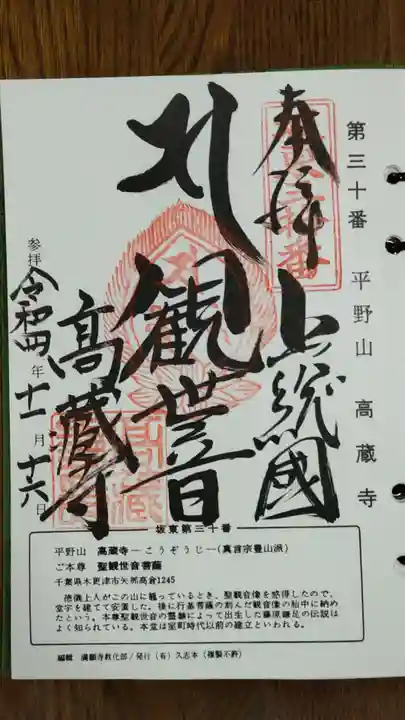 第三十番 平野山 高蔵寺
奉拝
上総國
観世音
高蔵寺
参拝 令和四年十一月十六日
坂東第三十番
平野山 高蔵寺―こうぞうじ―(真言宗豊山派)
ご本尊 聖観世音菩薩
千葉県木更津市矢那高倉1245
徳儀上人がこの山に籠っているとき、聖観音像を感得したので、
堂宇を建てて安置した。後に行基菩薩の刻んだ観音像の胎中に納め
たという。本尊聖観世音の霊験によって出生した藤原鎌足の伝説は
よく知られている。本堂は室町時代以前の建立といわれる。
編輯 満願寺教化部/発行(有)久志本(複製不許)